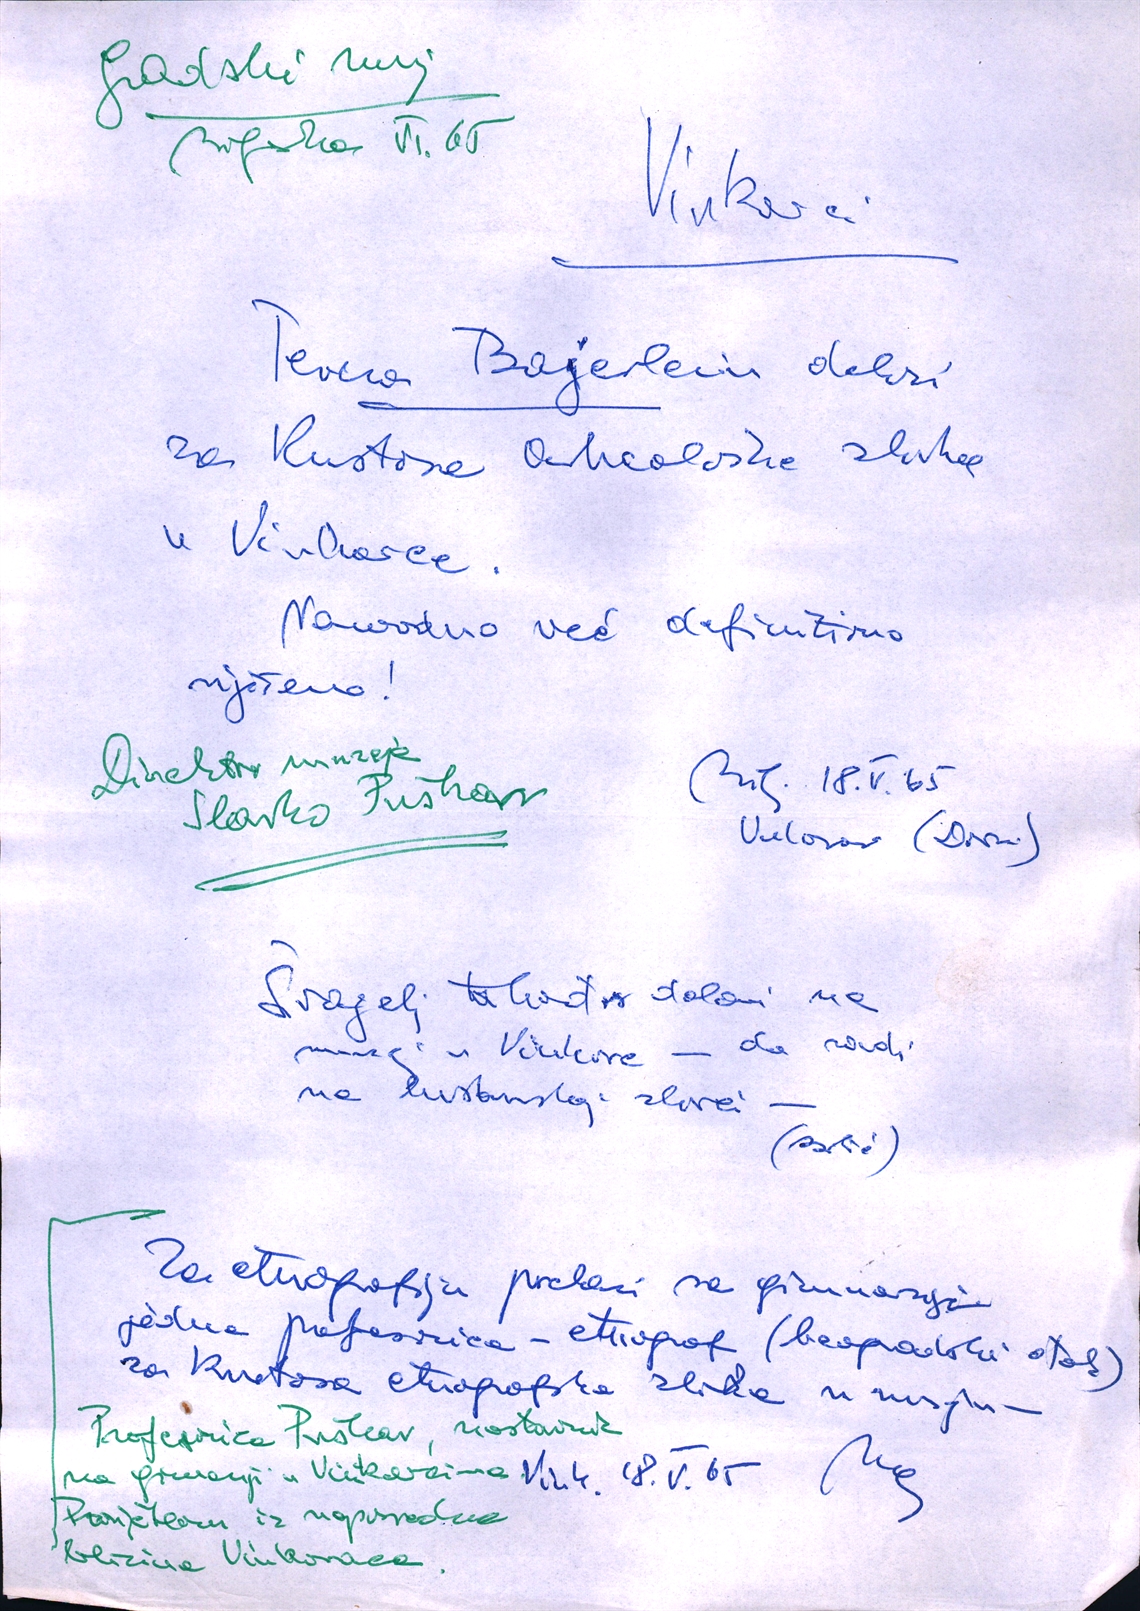 Gradski muz
bilješka VI. 65
Vinkovci
Perina Bajerlein dolazi
za Kustosa Arheološke zbirke
u Vinkovce.
Navodno već definitivno
riješeno!
Direktor muzeja
Slavko Puškar
Bilj. 18.V.65
Vukovar (Dorn)
Švagelj također dolazi na
muzej u Vinkovce — da radi
na kulturnoj zbirci —
Za etnografiju prelazi sa gimnazije
jedna profesorica - etnograf (beogradski
za Kustosa etnografske zbirke u muzeju —
Profesorica Puškar, nastavnik
na gimnaziji u Vinkovcima
Vink. 18.V.65
Porijetlom iz neposredne
blizine Vinkovaca.